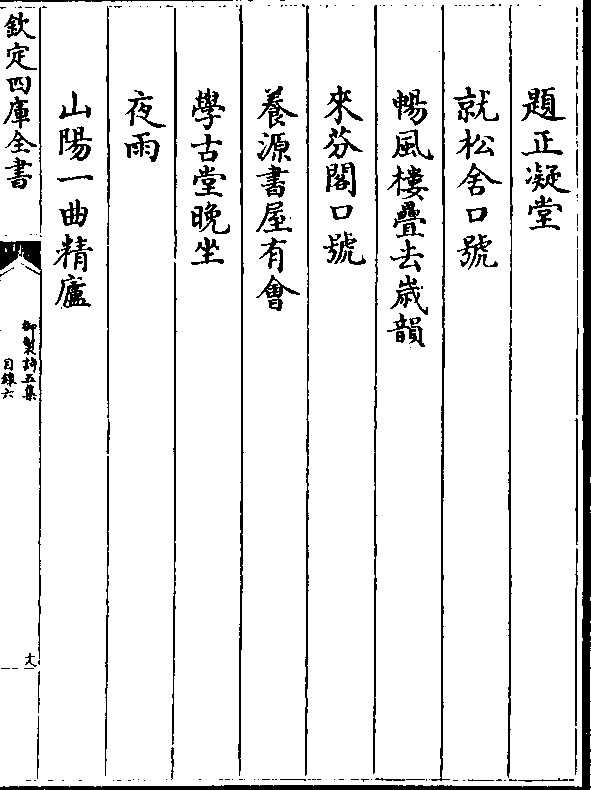 題正凝堂
就松舍口號
暢風樓疊去歲韻
來芬閣口號
養源書屋有會
學古堂晚坐
夜雨
山陽一曲精廬
欽定四庫全書
御製詩五集
目錄六